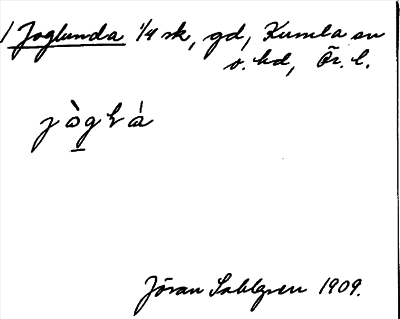 1/ Joglunda 1/4 sk, gd, Kumla sn
o. hd, Ör. l.
Jöran Sahlgren 1909.